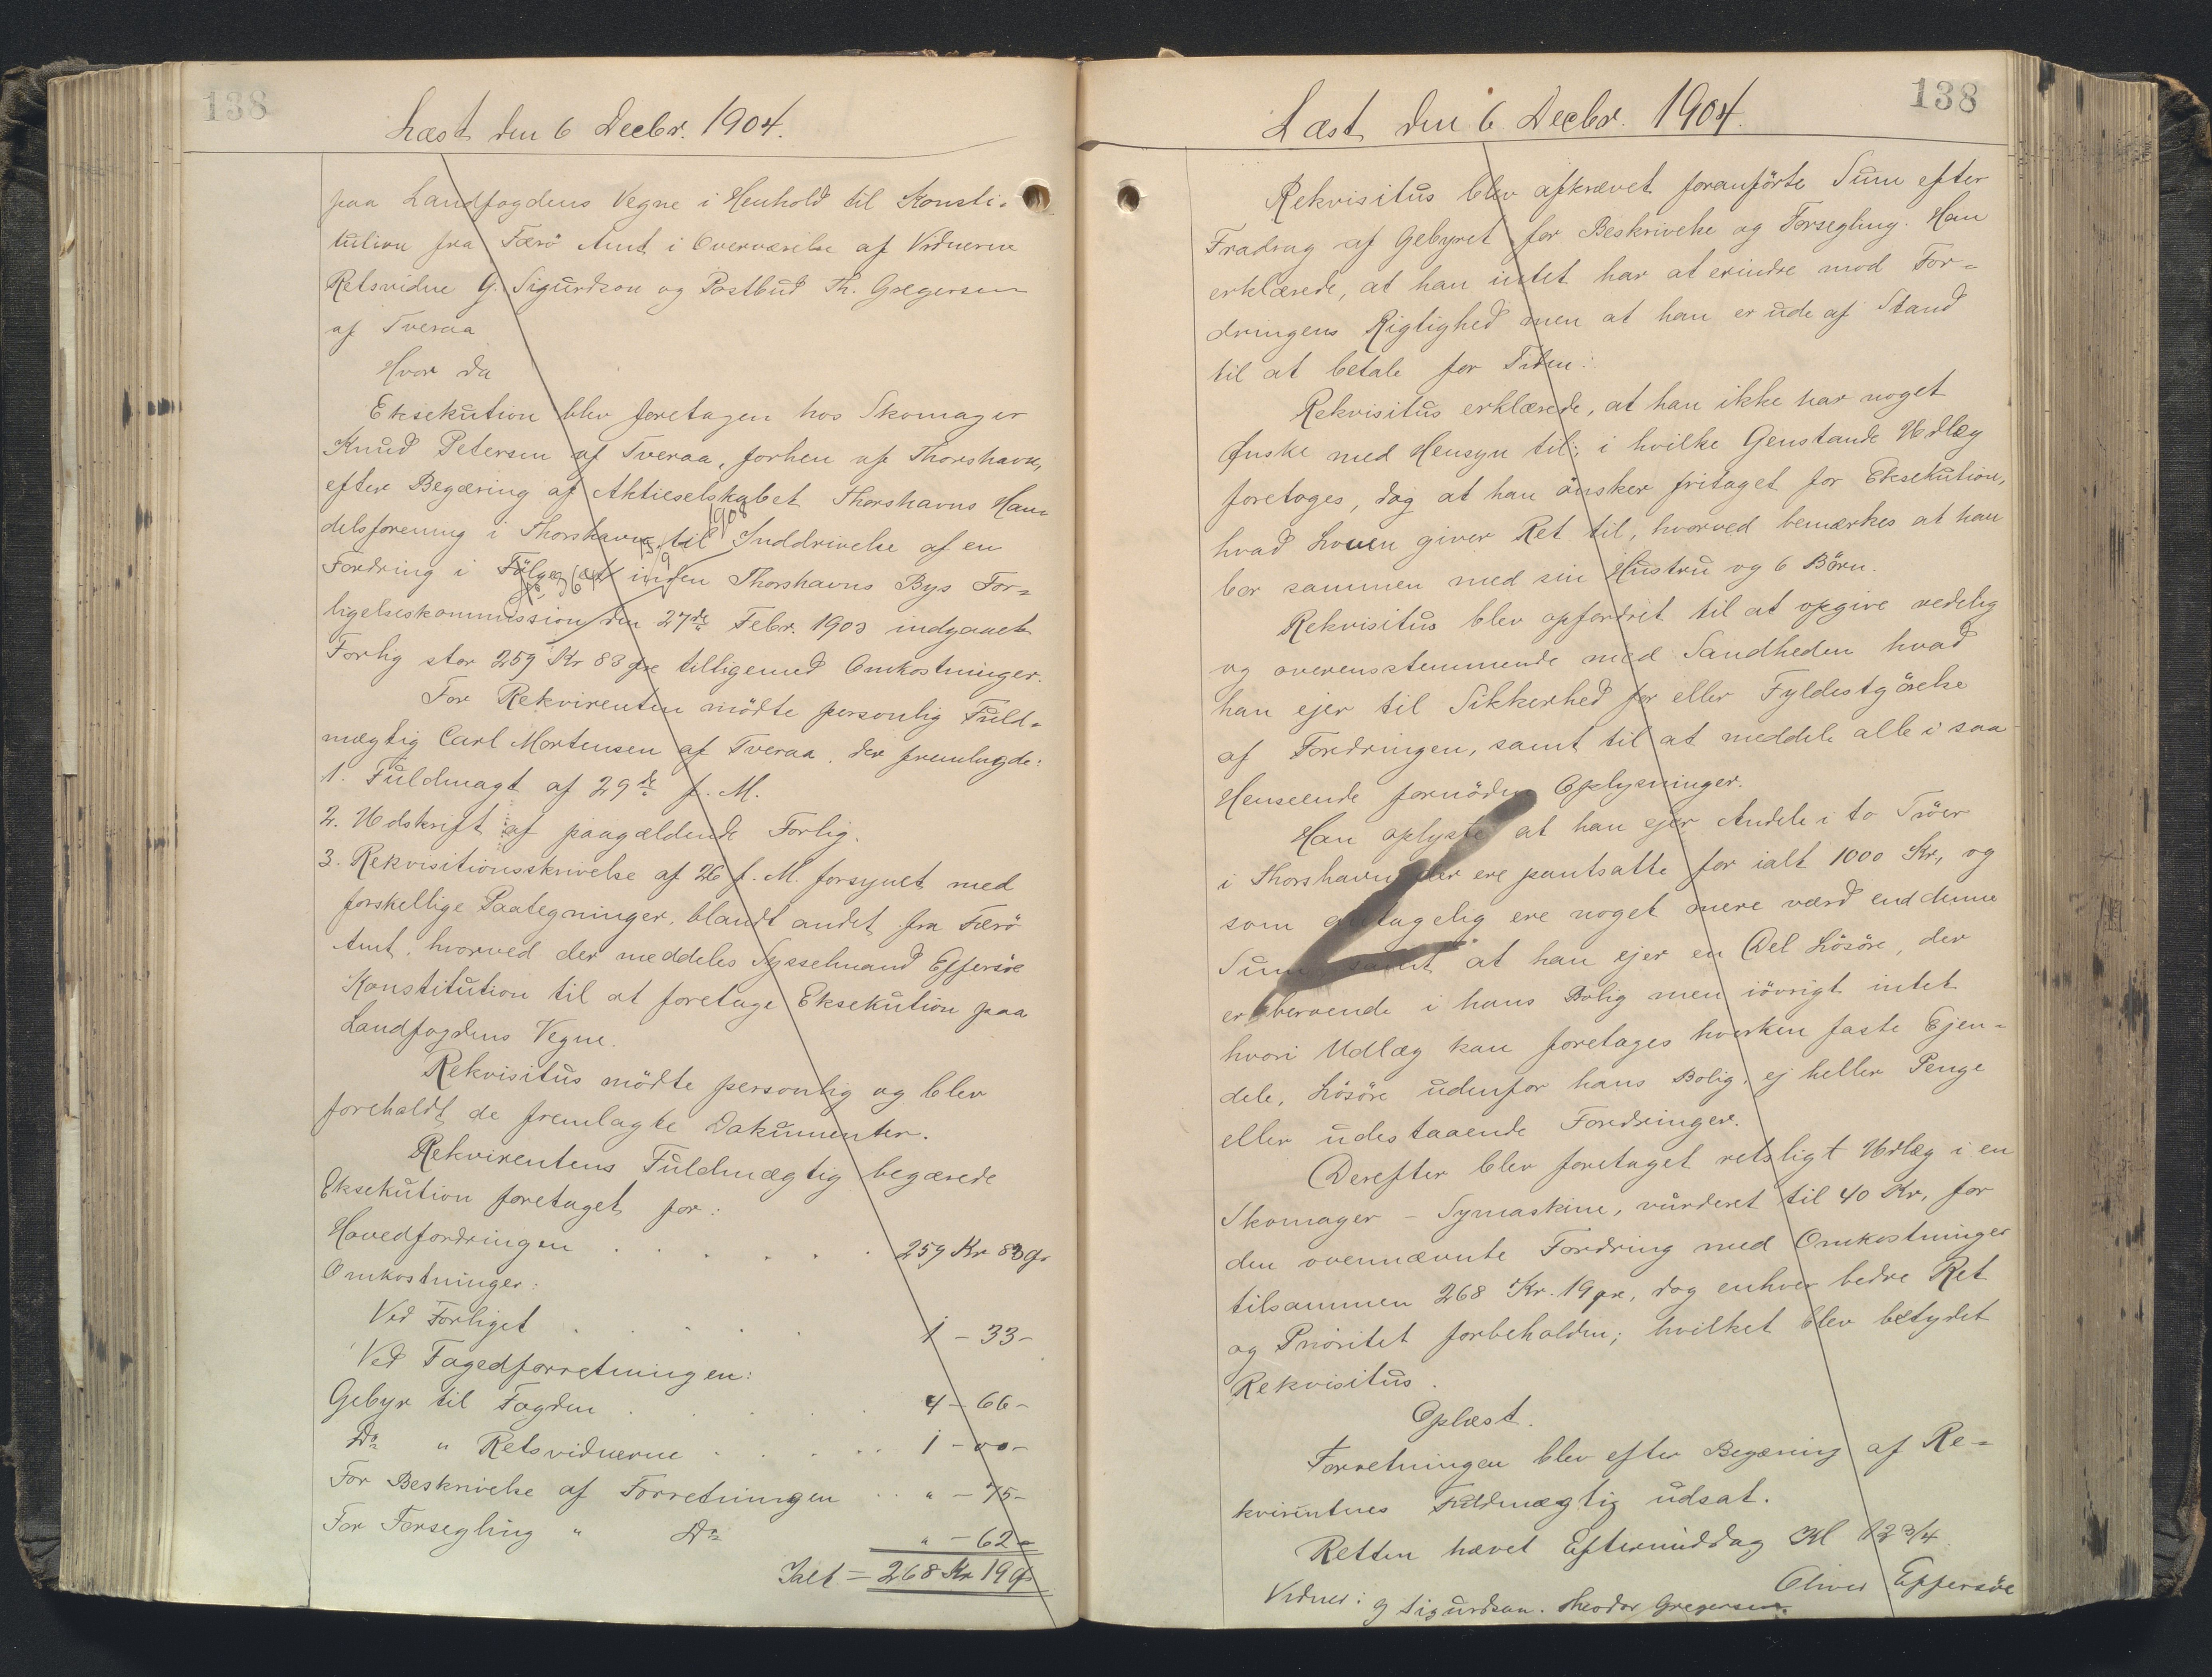 138
Læst den 6 Decbr. 1904.
paa Landfogdens Vegne i Henhold til Konsti-
tution fra Færö Amt i Overværelse af Vidnerne
Retsvidne G. Sigurdson og Postbud Th. Gregersen
af Tveraa
Hvor da
Eksekution blev foretagen hos Skomager
Knud Petersen af Tveraa, forhen af Thorshavn,
efter Begæring af Aktieselskabet Thorshavns Han-
delsforening i Thorshavn til Inddrivelse af en
1908
Fordring i Følge et inden Thorshavns Bys For-
ligelseskommission den 27de Febr. 1903 indgaaet
Forlig stor 259 Kr 83 Øre tilligemed Omkostninger.
For Rekvirenten mödte personlig Fuld-
mægtig Carl Mortensen af Tveraa, der fremlagde:
1. Fuldmagt af 29de f. M.
2. Udskrift af paagældende Forlig.
3. Rekvisitionsskrivelse af 26 f. M. forsynet med
forskellige Paategninger, blandt andet fra Færö
Amt, hvorved der meddeles Sysselmand Effersøe
Konstitution til at foretage Eksekution paa
Landfogdens Vegne.
Rekvisitus mödte personlig og blev
foreholdt de fremlagte Dokumenter.
Rekvirentens Fuldmægtig begærede
Eksekution foretaget for:
Hovedfordringen . . . . . . 259 Kr 83 Ør
Omkostninger:
Ved Forliget . . . . . 1 - 33 -
Ved Fogedforretningen:
Gebyr til Fogden . . . . 4 - 66 -
Do " Retsvidnerne . . . . . 1 - 00 -
For Beskrivelse af Forretningen . . " - 75 -
For Forsegling " Do " - 62 -
Ialt = 268 Kr 19 Ør
138
Læst den 6 Decbr. 1904.
Rekvisitus blev afkrævet foranförte Sum efter
Fradrag af Gebyret for Beskrivelse og Forsegling. Han
erklærede, at han intet har at erindre mod For-
dringens Rigtighed men at han er ude af Stand
til at betale for Tiden.
Rekvisitus erklærede, at han ikke har noget
Ønske med Hensyn til, i hvilke Genstande Udlæg
foretages, dog at han önsker fritaget for Eksekution,
hvad Loven giver Ret til, hvorved bemærkes at han
bor sammen med sin Hustru og 6 Börn.
Rekvisitus blev opfordret til at opgive redelig
og overensstemmende med Sandheden hvad
han ejer til Sikkerhed for eller Fyldestgörelse
af Fordringen, samt til at meddele alle i saa
Henseende fornödne Oplysninger.
Han oplyste at han ejer Andele i to Tröer
i Thorshavn der ere pantsatte for ialt 1000 Kr, og
som antagelig ere noget mere værd end denne
Sum samt at han ejer en Del Lösöre, der
er beroende i hans Bolig men iövrigt intet
hvori Udlæg kan foretages hverken faste Ejen-
dele, Lösöre udenfor hans Bolig, ej heller Penge
eller udestaaende Fordringer.
Derefter blev foretaget retsligt Udlæg i en
Skomager - Symaskine, vurderet til 40 Kr, for
den ovennævnte Fordring med Omkostninger
tilsammen 268 Kr. 19 Øre, dog enhver bedre Ret
og Prioritet forbeholden; hvilket blev betydet
Rekvisitus.
Oplæst.
Forretningen blev efter Begæring af Re-
kvirentens Fuldmægtig udsat.
Retten hævet Eftermiddag Kl 12 3/4
Oliver Effersöe
Vidner: G Sigurdson. Theodor Gregersen.